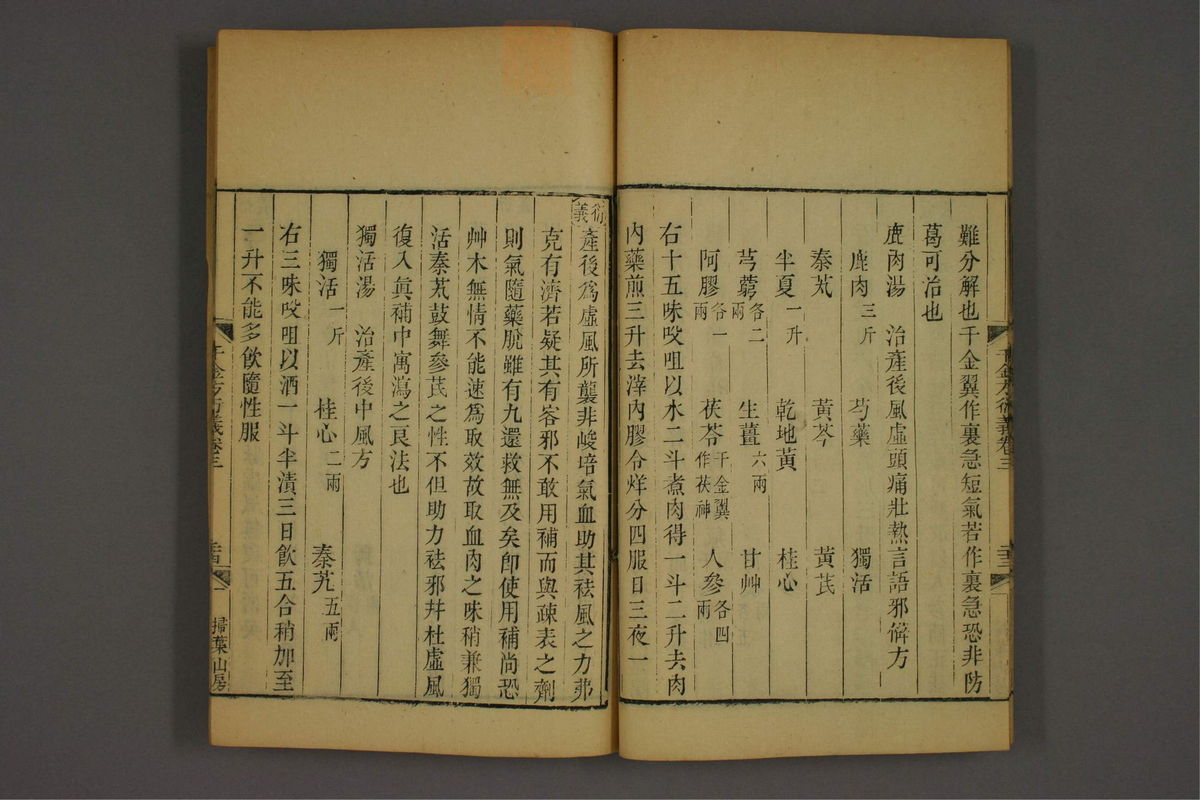 難分解也千金翼作裏急短氣若作裏急恐非防
葛可治也
鹿肉湯 治產後風虛頭痛壯熱言語邪僻方
鹿肉三斤 芍藥 獨活
秦艽 黃芩 黃芪
半夏一升 乾地黃 桂心
芎藭各二兩 生薑六兩 甘艸
阿膠各一兩 茯苓千金翼作茯神 人參各四兩
右十五味㕮咀以水二斗煮肉得一斗二升去肉
內藥煎三升去滓內膠令烊分四服日三夜一
千金方衍義卷三
衍義產後爲虛風所襲非峻培氣血助其祛風之力弗
克有濟若疑其有客邪不敢用補而與疎表之劑
則氣隨藥脫雖有九還救無及矣卽使用補尚恐
艸木無情不能速爲取效故取血肉之味稍兼獨
活秦艽鼓舞參芪之性不但助力祛邪幷杜虛風
復入眞補中寓瀉之良法也
獨活湯 治產後中風方
獨活一斤 桂心二兩 秦艽五兩
右三味㕮咀以酒一斗半漬三日飲五合稍加至
一升不能多飲隨性服
千金方衍義卷三 掃葉山房